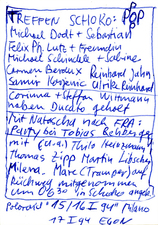 TREFFEN SCHOKO: POP
Michael Dodt + Sebastian
Felix Ph. Lutz + Freundin
Michael Schindele + Sabine
Carmen Reinhard Jahn
Samir Ulrike Reinhard
Corinna + Steffen Wittmann
haben Ducato geholt
Mit Natascha nach FRA:
Party bei Tobias Rehberger
mit (u.a.) Thilo Heinzmann
Thomas Zipp Martin Liebscher
Milena. Marc (Tramper) auf
Rückweg mitgenommen
um 0630 in Schoko angek.
Polaroid "15/16 I 94" Milano
17 I 94 EGON